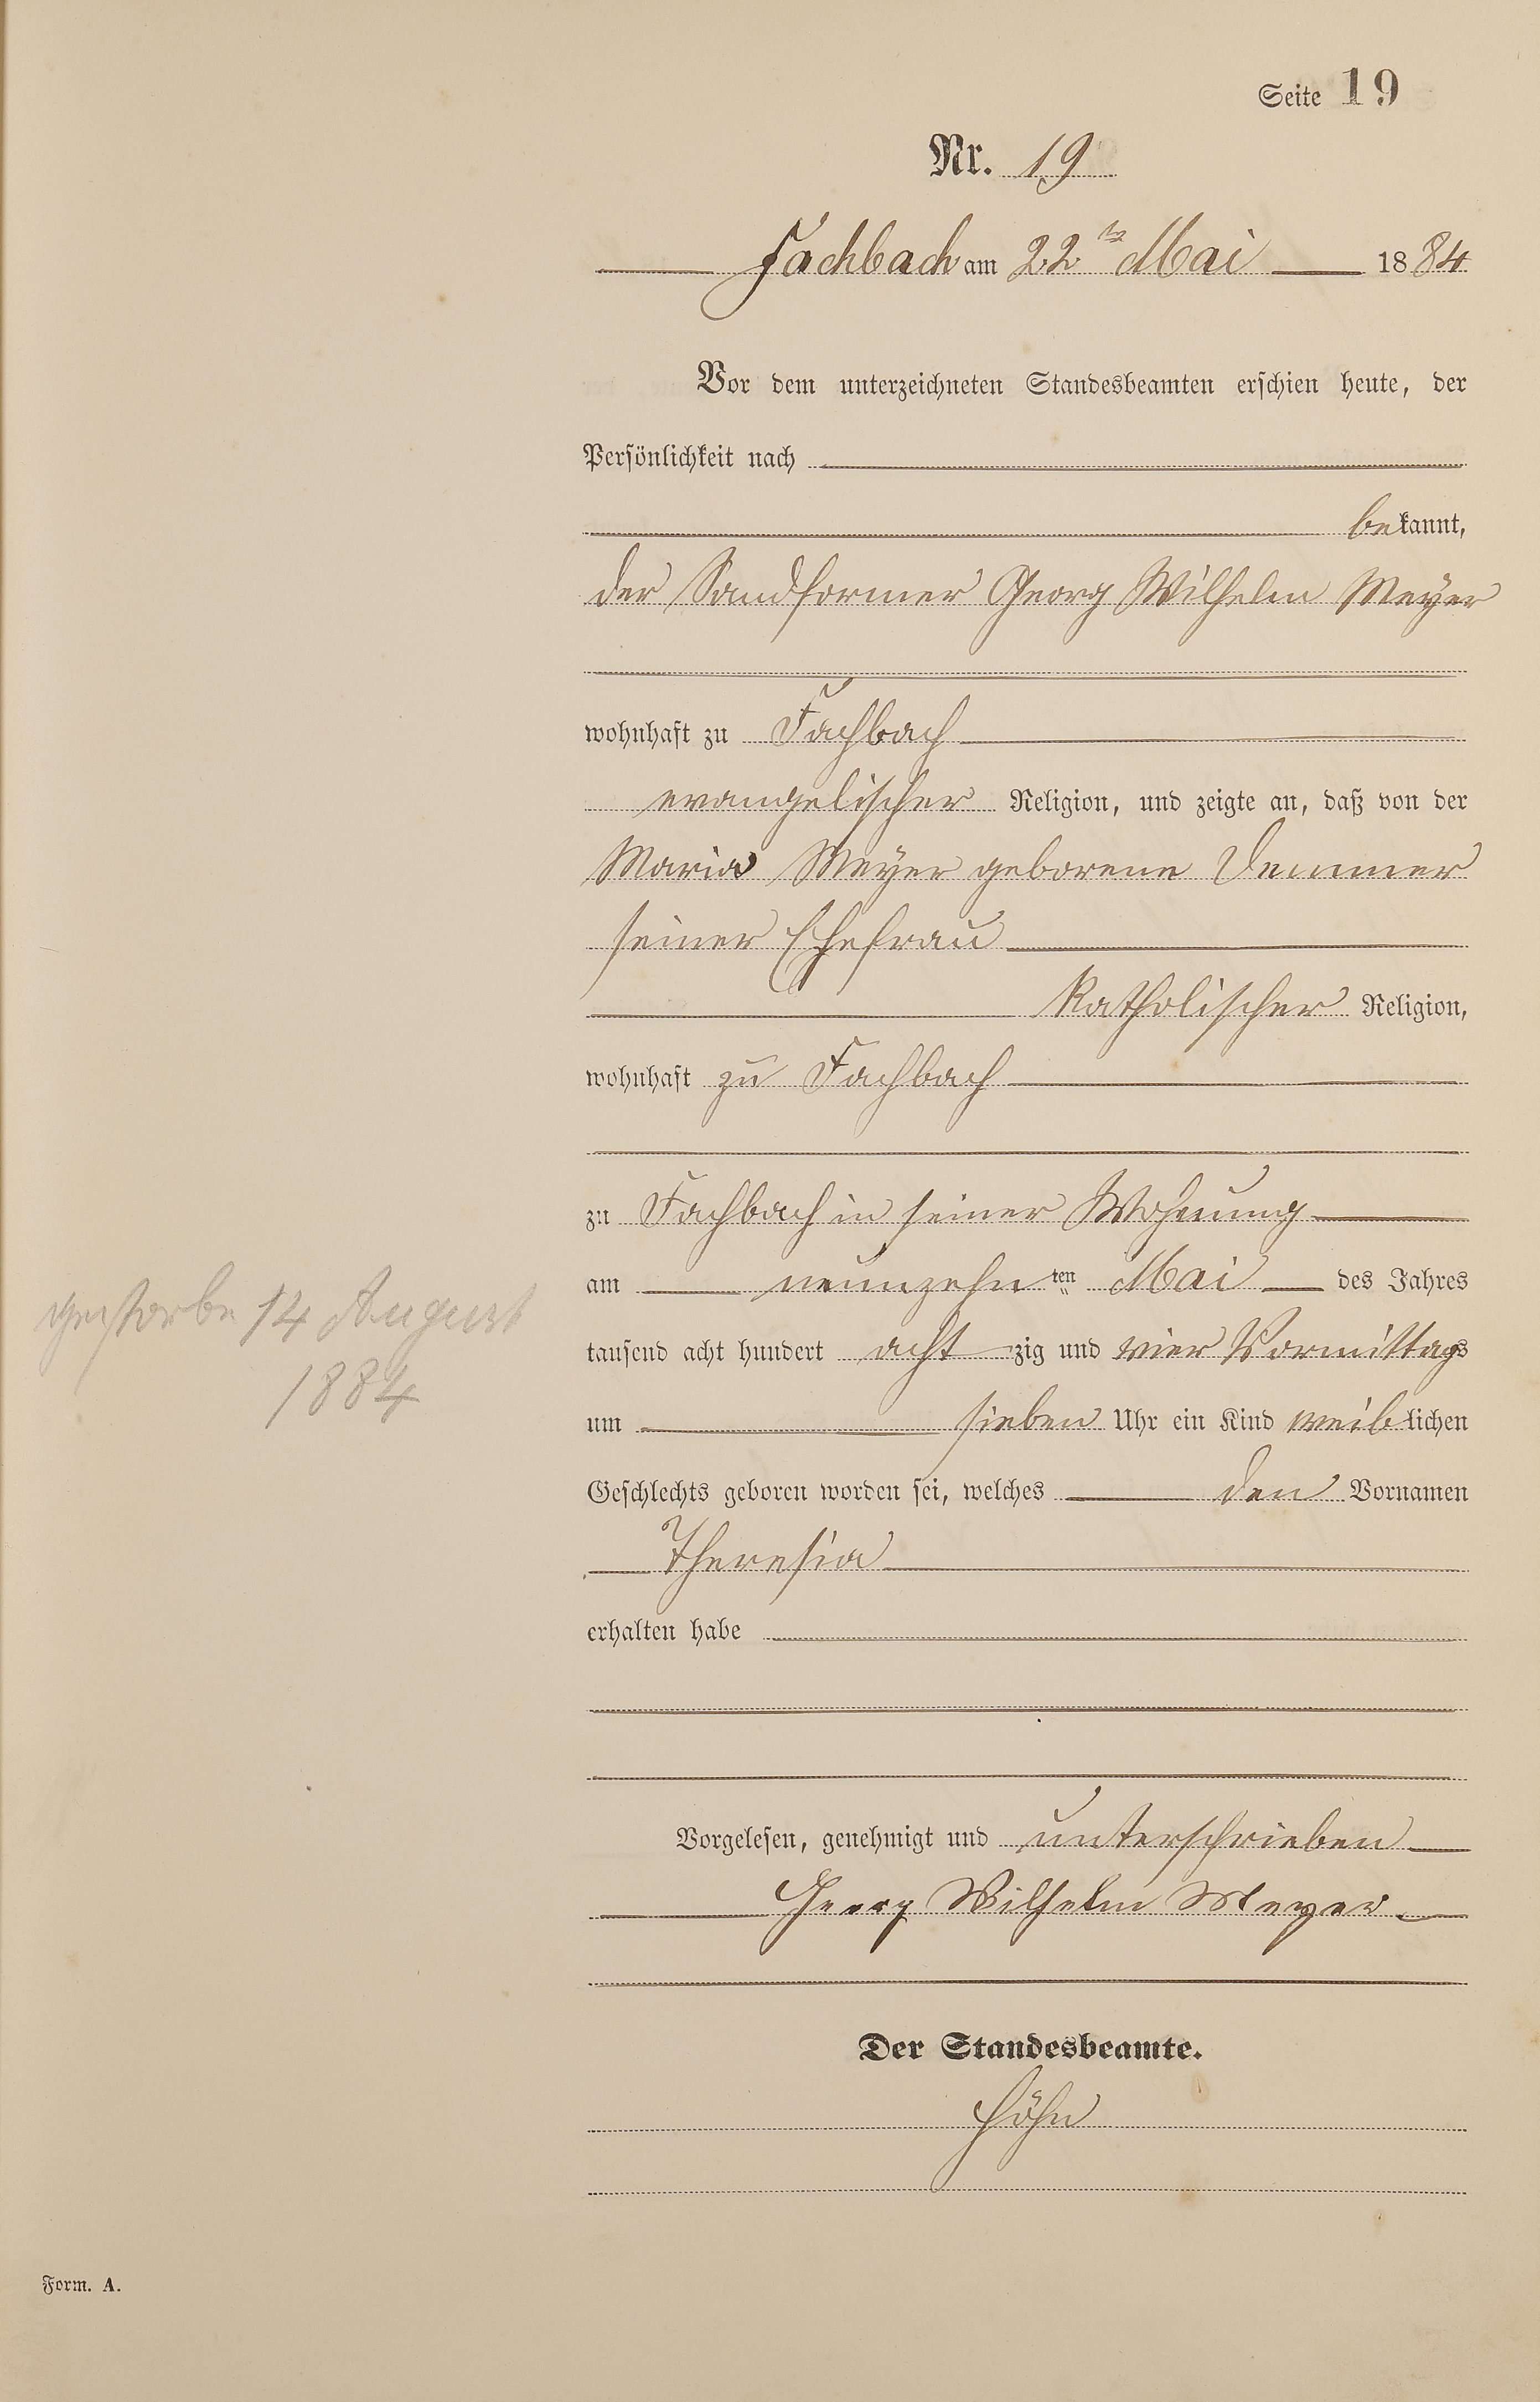 Seite 19
Nr. 19
Fachbach am 22ten Mai 1884
Vor dem unterzeichneten Standesbeamten erschien heute, der
Persönlichkeit nach
bekannt,
der Sandformer Georg Wilhelm Meyer
wohnhaft zu Fachbach
evangelischer Religion, und zeigte an, daß von der
Maria Meyer geborene Demmer
seiner Ehefrau
katholischer Religion,
wohnhaft zu Fachbach
zu Fachbach in seiner Wohnung
am neunzehnten Mai des Jahres
tausend acht hundert achtzig und vier Vormittags
um sieben Uhr ein Kind weiblichen
Geschlechts geboren worden sei, welches den Vornamen
Theresia
erhalten habe
Vorgelesen, genehmigt und unterschrieben
Georg Wilhelm Meyer.
Der Standesbeamte.
Höhn
gestorbe 14 August
1884
Form. A.